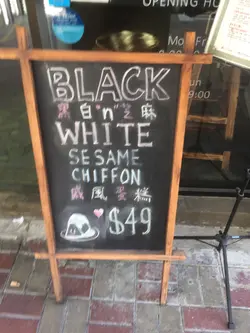 OPENING HO
Mo Fri
9:00
BLACK
黑白'n'芝麻
WHITE
SESAME
CHIFFON
戚風蛋糕
$49